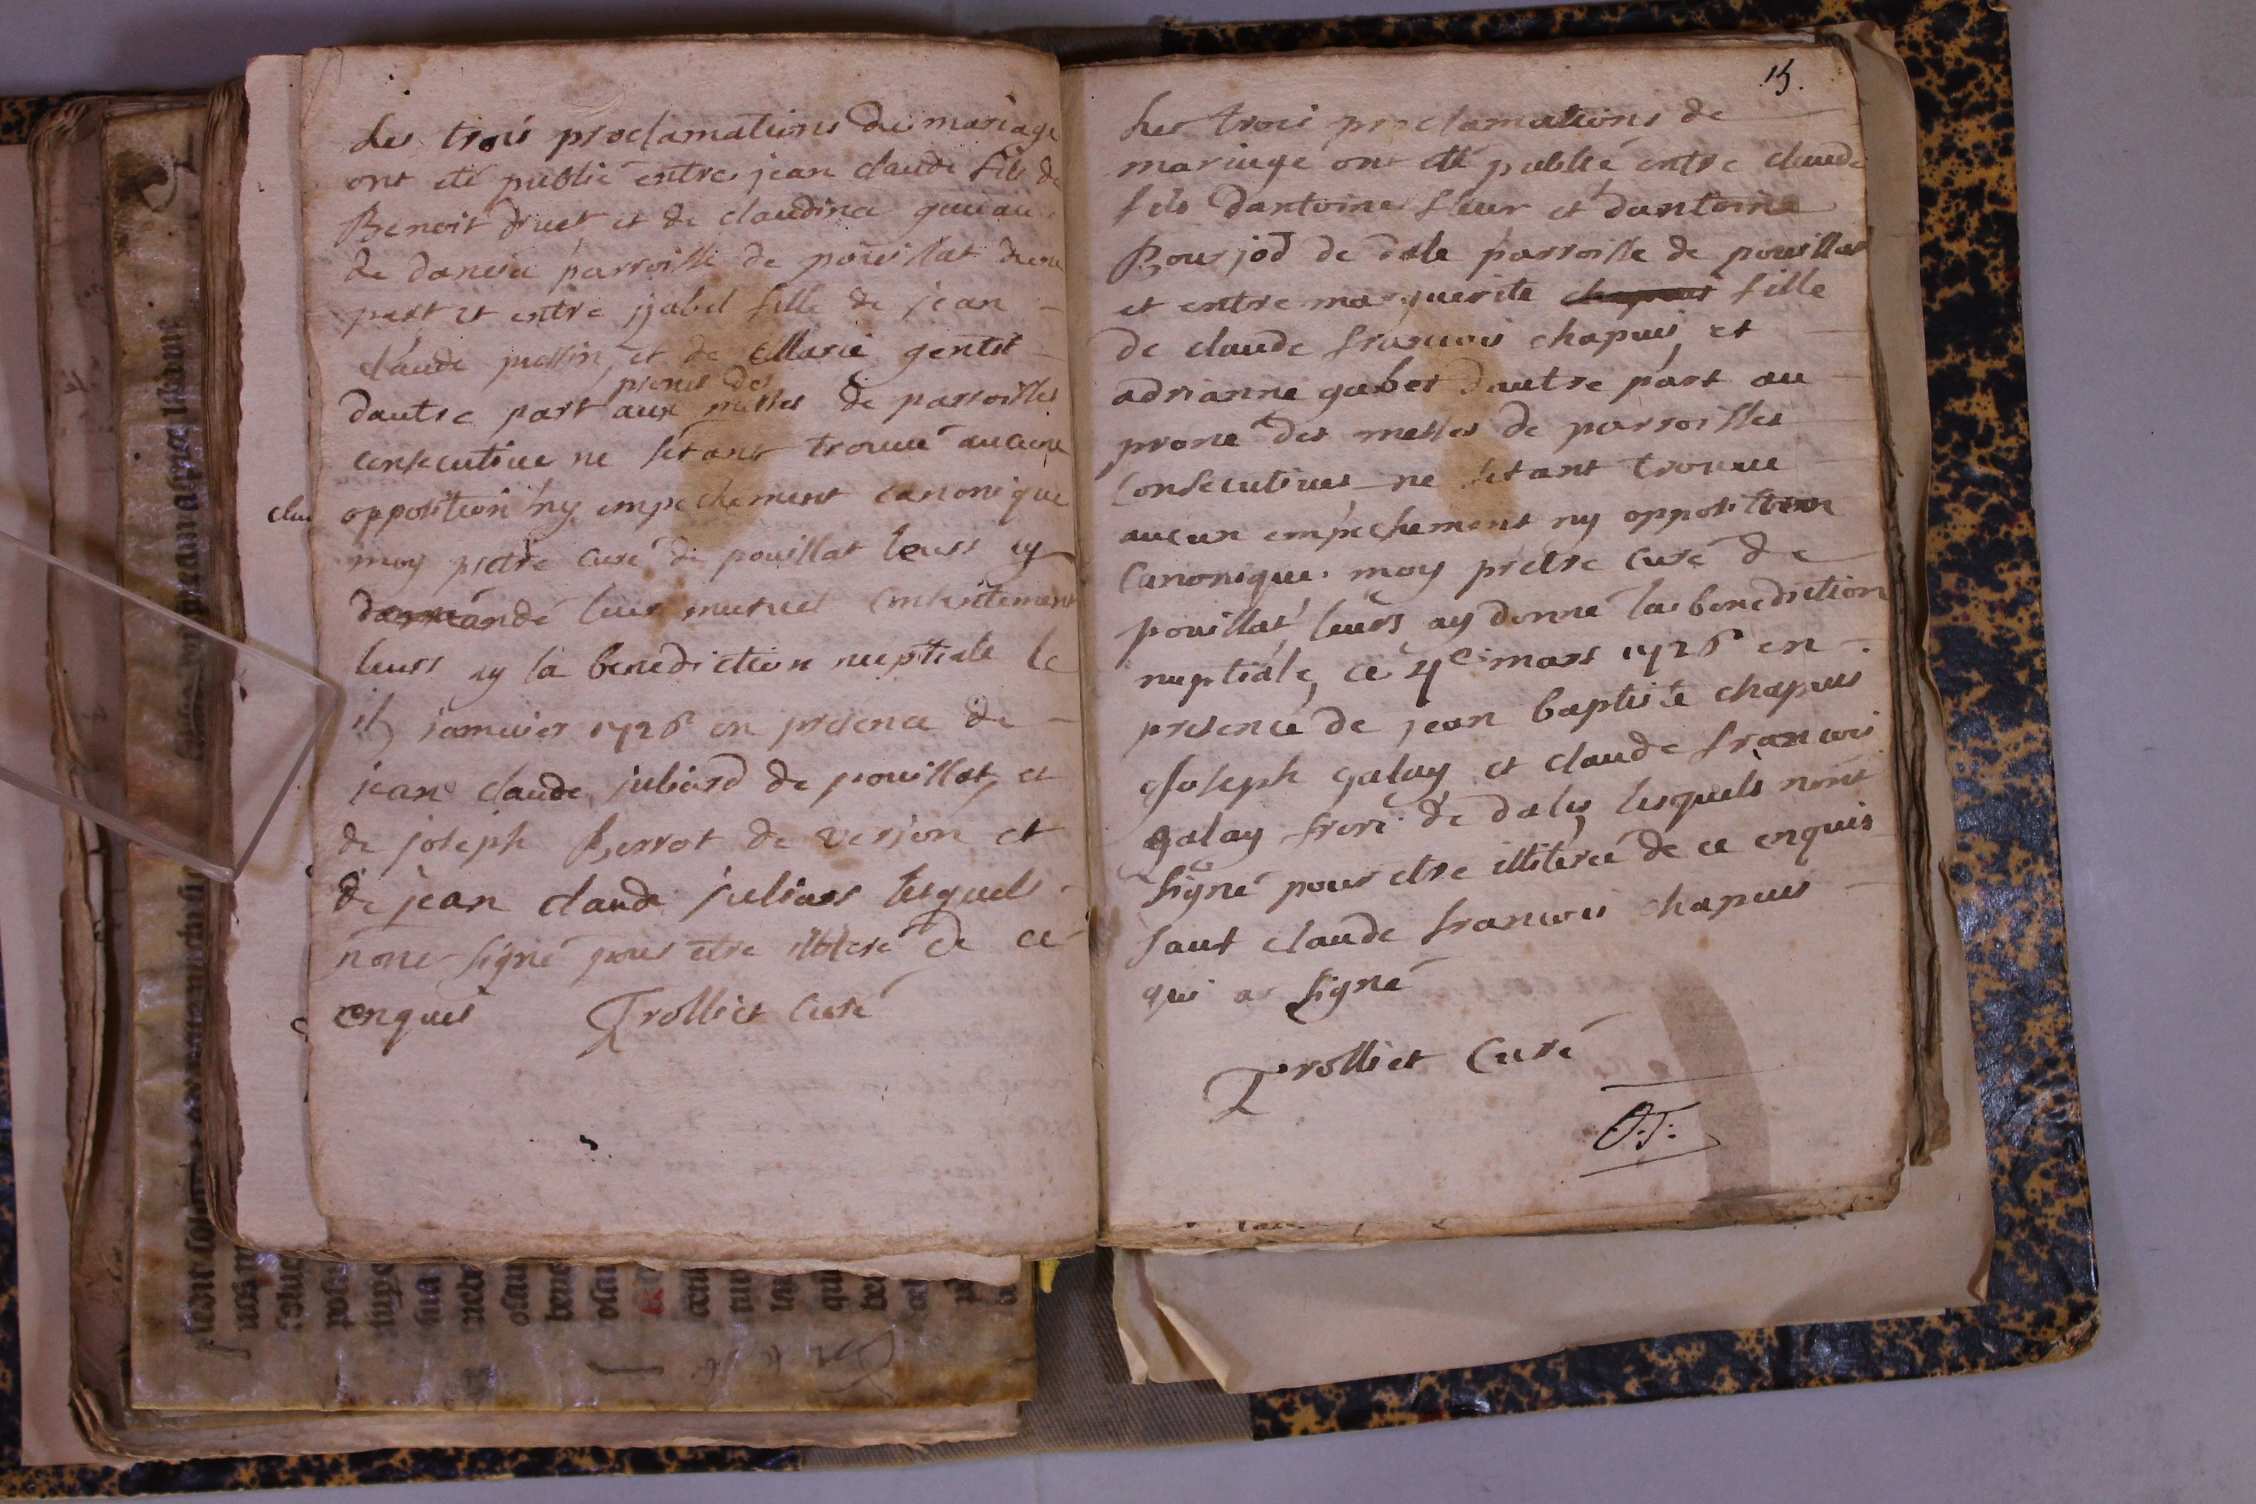 Les trois proclamations du mariage
ont eté publié entre jean claude fils de
Benoit druet et de claudina
de dancia parroisse de pouillat dune
part et entre jsabel fille de jean
claude et de Marie gentit
prones des
dautre part aux messes de parroisses
consecutive ne setant trouué aucune
opposition ny empechement canonique
moy pretre curé de pouillat leurs ay
demandé leur mutuel consentement
leurs ay la benediction nuptiale le
15 januier 1726 en presence de
jean claude juliard de pouillat, et
de joseph Perrot de verjon et
de jean claude juliars lesquels
nont signé pour etre illiteré de ce
enquis Trolliet Curé
15.
Les trois proclamations de
mariage ont eté publié entre claude
fils dantoine fleur et dantoina
Bourjod de dale parroisse de pouillat
et entre marguerite chapuis fille
de claude francois chapuis et
adrianne gabet dautre part au
prone des messes de parroisses
Consecutiues ne setant trouue
aucun empechement ny opposition
Canonique. moy pretre curé de
pouillat leurs ay donné la benediction
nuptiale, ce 4e mars 1726 en
presence de jean baptiste chapuis
Joseph galay et claude francois
galay frere de dale, lesquels nont
signé pour etre illiteré de ce enquis
sauf claude francois chapuis
qui a signé
Trolliet Curé